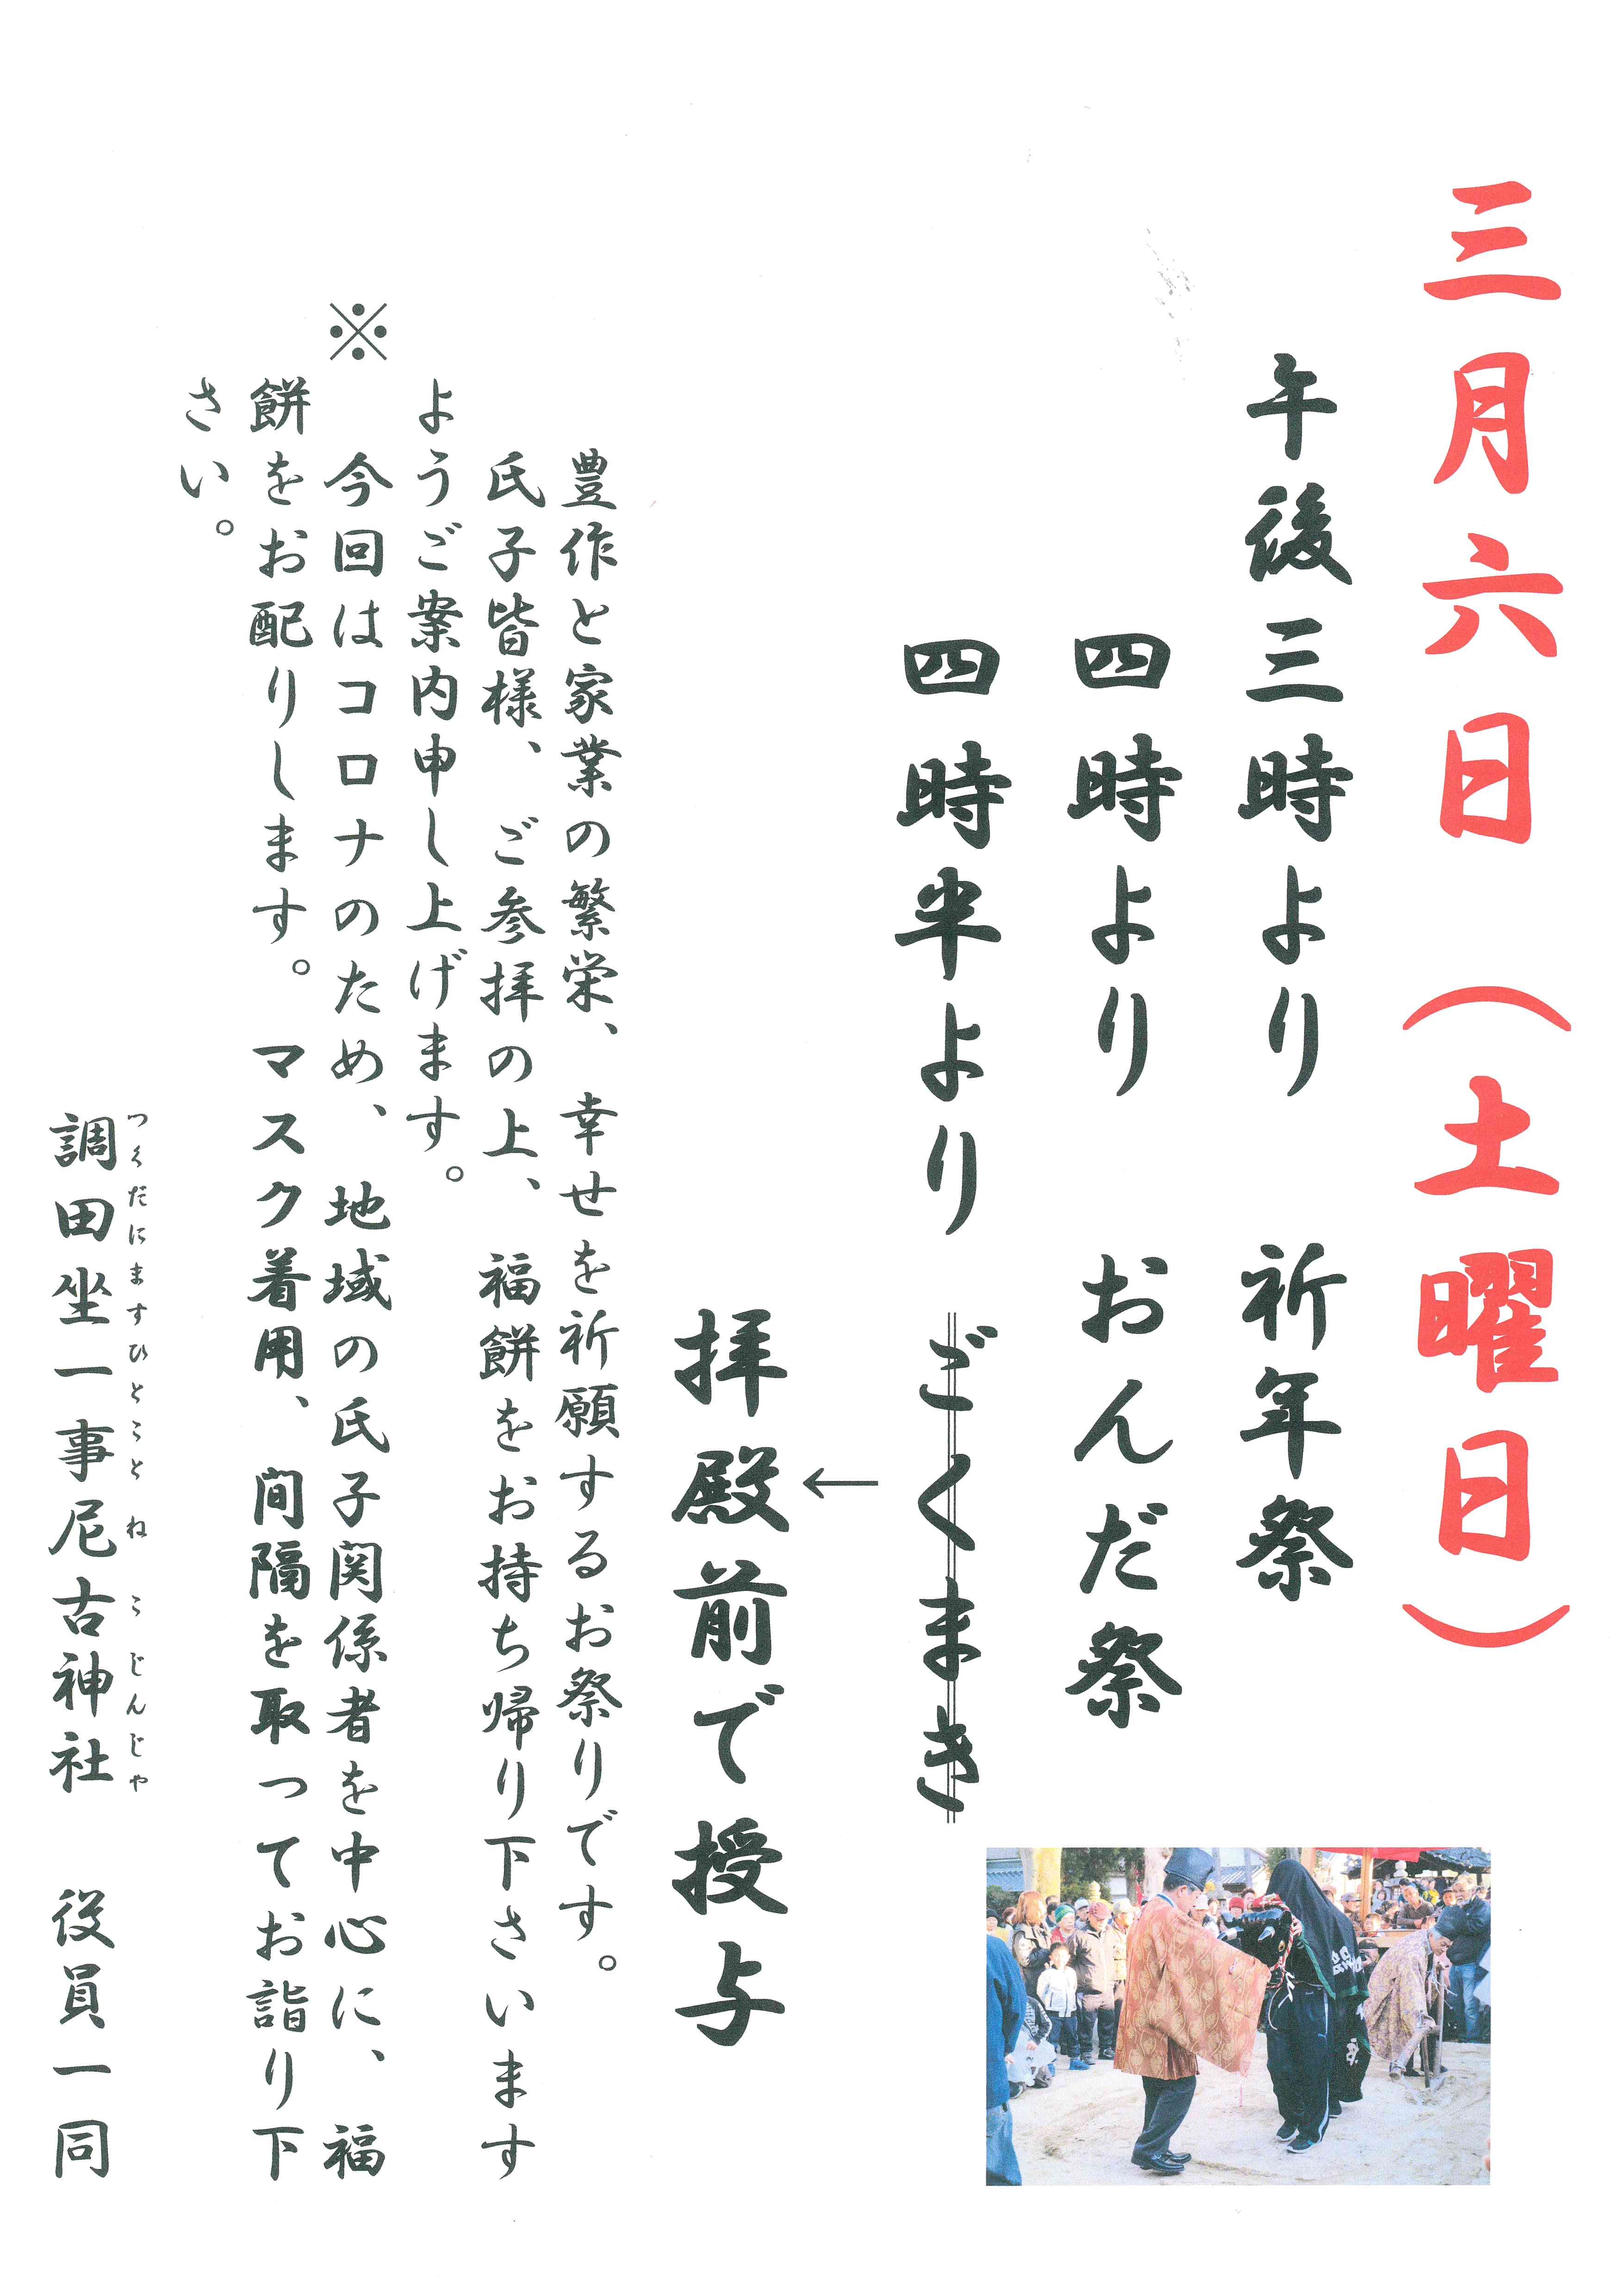 三月六日（土曜日）
午後三時より　祈年祭
四時より　おんだ祭
四時半より　ごくまき
←
拝殿前で授与
豊作と家業の繁栄、幸せを祈願するお祭りです。
氏子皆様、ご参拝の上、福餅をお持ち帰り下さいます
ようご案内申し上げます。
※　今回はコロナのため、地域の氏子関係者を中心に、福
餅をお配りします。マスク着用、間隔を取ってお詣り下
さい。
つくだにますひとことねこじんじゃ
調田坐一事尼古神社　役員一同